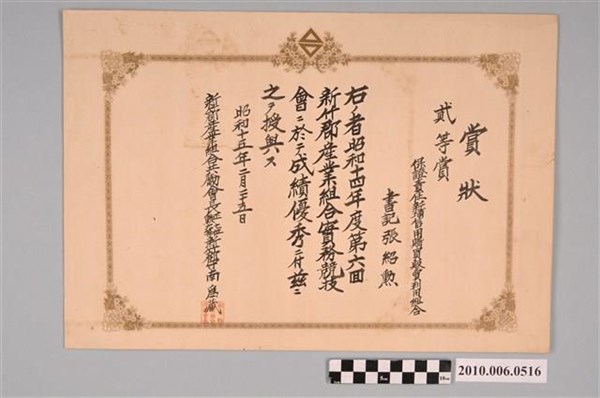 賞狀
貳等賞
保證責任新埔信用購買販賣利用組合
書記 張紹勳
右ノ者昭和十四年度第六回
新竹郡産業組合實務競技
會ニ於テ成績優秀ニ付茲ニ
之ヲ授與ス
昭和十五年二月二十五日
2010.006.0516
5cm
10cm